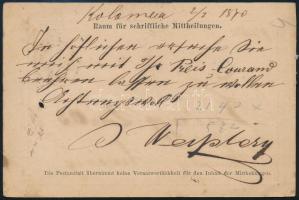 Kolomea 2/2 1870
Raum für schriftliche Mittheilungen.
In höflichen ersuche Sie
mich mit Ihr Preis-Courand
beehren lassen zu wollen
Achtungsvoll
Die Postanstalt übernimmt keine Verantwortlichkeit für den Inhalt der Mittheilungen.